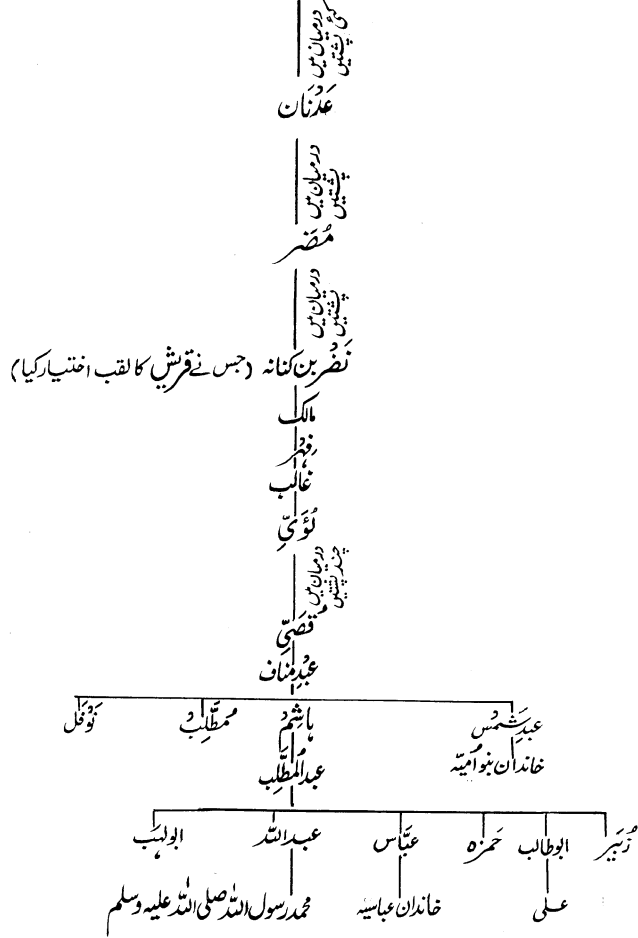 درمیان میں
کئی پشتیں
عَدْنَان
درمیان میں
پشتیں
مُضَر
درمیان میں
پشتیں
نَضْر بن کنانہ (جس نے قریش کا لقب اختیار کیا)
مالک
فِہْر
غالب
لُؤَیّ
درمیان میں
چند پشتیں
قُصَیّ
عبدِ مناف
عبدِ شَمْس ہاشِمْ مُطَّلِب نَوْفَل
خاندان بنو اُمیّہ
عبدُالمُطَّلِب
زُبَیر ابوطالب حَمزہ عبّاس عبداللہ ابولہَب
علی خاندان عباسیہ محمد رسول اللہ صلی اللہ علیہ وسلم